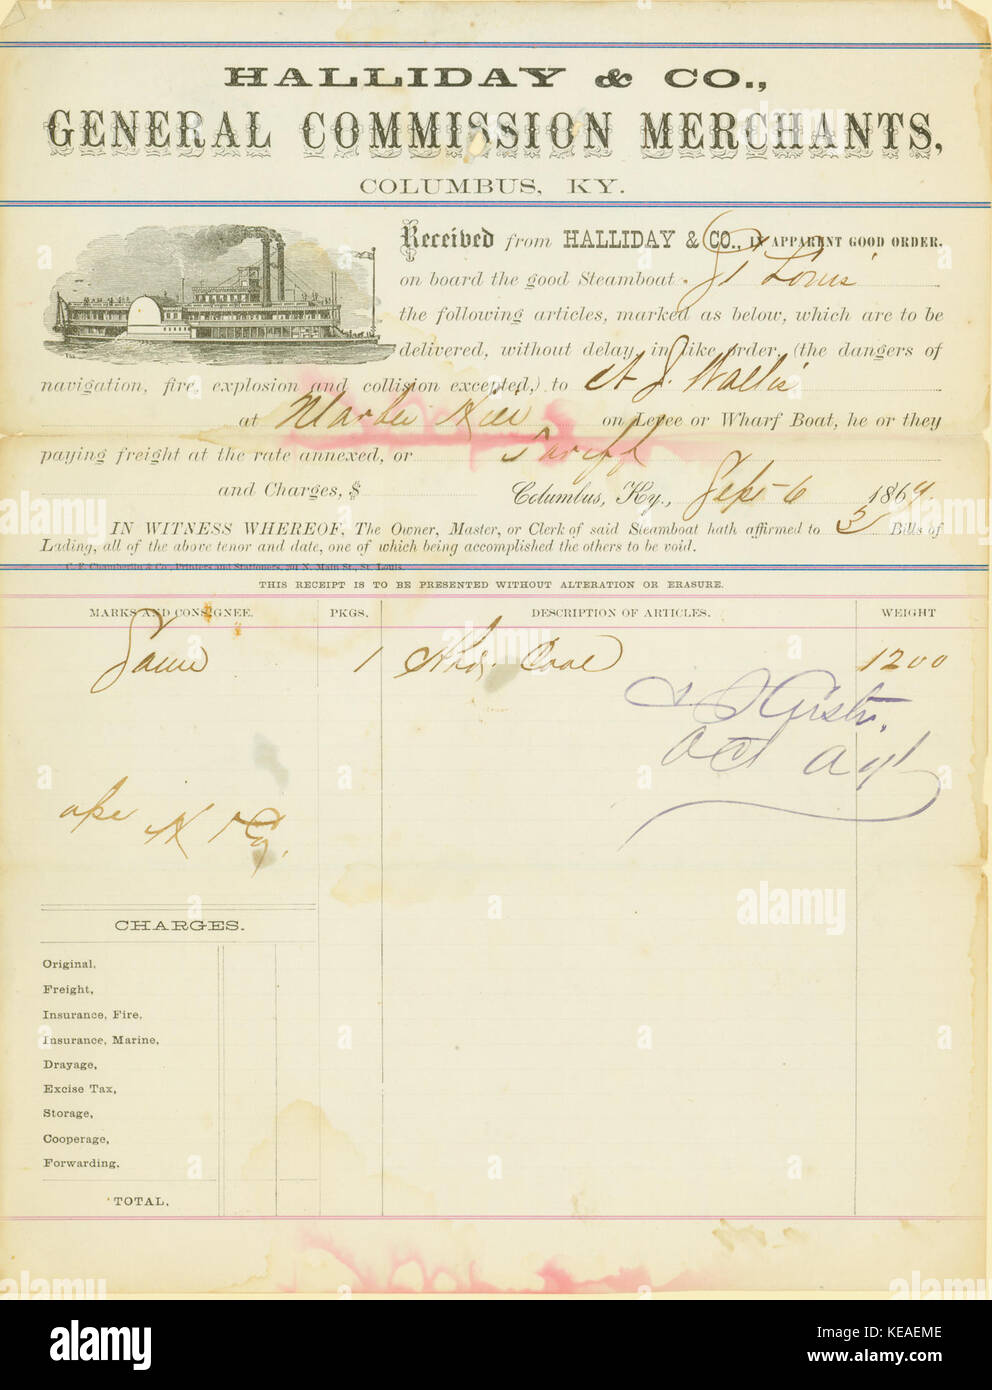 HALLIDAY & CO.,
GENERAL COMMISSION MERCHANTS,
COLUMBUS, KY.
Received from HALLIDAY & CO., IN APPARENT GOOD ORDER,
on board the good Steamboat St Louis
the following articles, marked as below, which are to be
delivered, without delay, in like order, (the dangers of
navigation, fire, explosion and collision excepted,) to A J. Wallis
at on Levee or Wharf Boat, he or they
paying freight at the rate annexed, or Tariff
and Charges, $ Columbus, Ky., Sept 6 1869.
IN WITNESS WHEREOF, The Owner, Master, or Clerk of said Steamboat hath affirmed to 3 Bills of
Lading, all of the above tenor and date, one of which being accomplished the others to be void.
C. F. Chamberlin & Co., Printers and Stationers, 301 N. Main St., St. Louis.
THIS RECEIPT IS TO BE PRESENTED WITHOUT ALTERATION OR ERASURE.
MARKS AND CONSIGNEE. PKGS. DESCRIPTION OF ARTICLES. WEIGHT
Same 1 1200
Oct Agt
CHARGES.
Original,
Freight,
Insurance, Fire,
Insurance, Marine,
Drayage,
Excise Tax,
Storage,
Cooperage,
Forwarding.
TOTAL,
alamy
Image ID: KEAEME
www.alamy.com